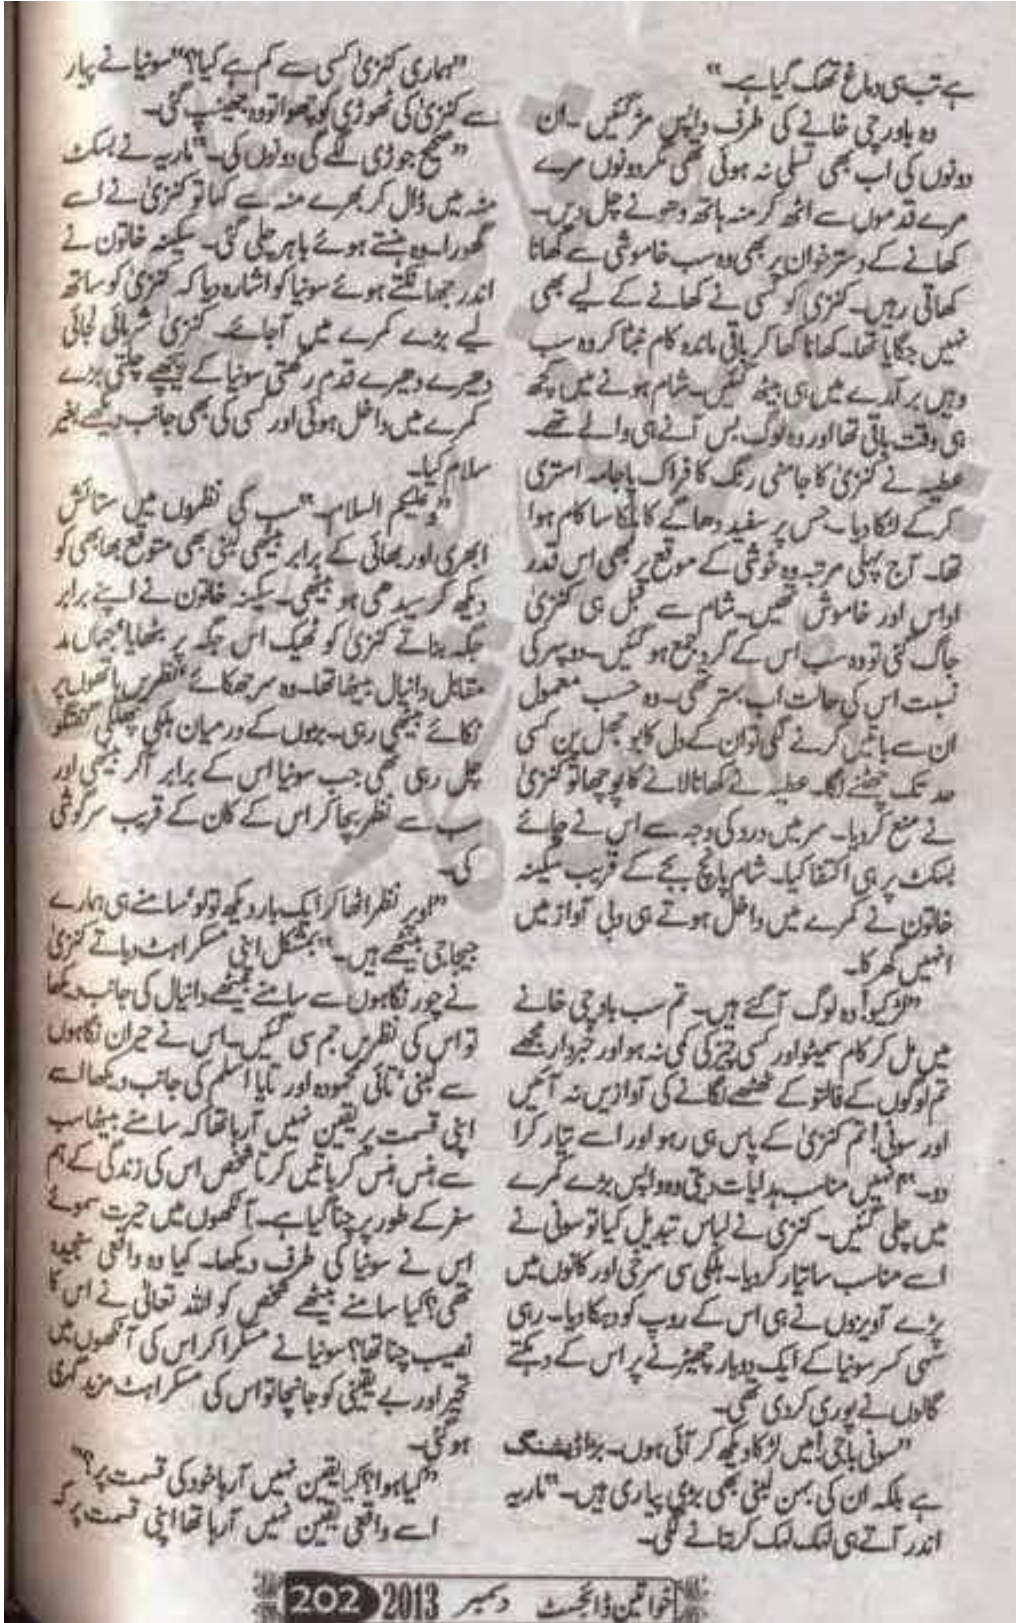 ہے تب ہی دماغ تھک گیا ہے۔"
وہ باورچی خانے کی طرف واپس مڑ گئیں۔ ان
دونوں کی اب بھی تسلی نہ ہوئی تھی مگر دونوں مرے
مرے قدموں سے اٹھ کر منہ ہاتھ دھونے چل دیں۔
کھانے کے دسترخوان پر بھی وہ سب خاموشی سے کھانا
کھاتی رہیں۔ کنزیٰ کو کسی نے کھانے کے لیے بھی
نہیں جگایا تھا۔ کھانا کھا کر باقی ماندہ کام نبٹا کر وہ سب
وہیں برآمدے میں ہی بیٹھ گئیں۔ شام ہونے میں کچھ
ہی وقت باقی تھا اور وہ لوگ بس آنے ہی والے تھے۔
عطیہ نے کنزیٰ کا جامنی رنگ کا فراک پاجامہ استری
کرکے لٹکا دیا۔ جس پر سفید دھاگے کا ہلکا سا کام ہوا
تھا۔ آج پہلی مرتبہ وہ خوشی کے موقع پر بھی اس قدر
اداس اور خاموش تھیں۔ شام سے قبل ہی کنزیٰ
جاگ گئی تو وہ سب اس کے گرد جمع ہو گئیں۔ دوپہر کی
نسبت اس کی حالت اب بہتر تھی۔ وہ حسب معمول
ان سے باتیں کرنے لگی تو ان کے دل کا بوجھل پن کسی
حد تک چھٹنے لگا۔ عطیہ نے کھانا لانے کا پوچھا تو کنزیٰ
نے منع کر دیا۔ سر میں درد کی وجہ سے اس نے چائے
بسکٹ پر ہی اکتفا کیا۔ شام پانچ بجے کے قریب سکینہ
خاتون نے کمرے میں داخل ہوتے ہی دبی آواز میں
انہیں گھرکا۔
"لڑکیو! وہ لوگ آگئے ہیں۔ تم سب باورچی خانے
میں مل کر کام سمیٹو اور کسی چیز کی کمی نہ ہو اور خبردار مجھے
تم لوگوں کے فالتو کے ٹھٹھے لگانے کی آوازیں نہ آئیں
اور سونی! تم کنزیٰ کے پاس ہی رہو اور اسے تیار کرا
دو۔" انہیں مناسب ہدایات دیتی وہ واپس بڑے کمرے
میں چلی گئیں۔ کنزیٰ نے لباس تبدیل کیا تو سونی نے
اسے مناسب سا تیار کر دیا۔ ہلکی سی سرخی اور کانوں میں
پڑے آویزوں نے ہی اس کے روپ کو دہکا دیا۔ رہی
سہی کسر سونیا کے ایک دو بار چھیڑنے پر اس کے دہکتے
گالوں نے پوری کر دی تھی۔
"سونی باجی! میں لڑکا دیکھ کر آئی ہوں۔ بڑا ڈیشنگ
ہے بلکہ ان کی بہن لبنیٰ بھی بڑی پیاری ہیں۔" ماریہ
اندر آتے ہی لہک لہک کر بتانے لگی۔
"ہماری کنزیٰ کسی سے کم ہے کیا؟" سونیا نے پیار
سے کنزیٰ کی ٹھوڑی کو چھوا تو وہ جھینپ گئی۔
"صحیح جوڑی لگے گی دونوں کی۔" ماریہ نے بسکٹ
منہ میں ڈال کر بھرے منہ سے کہا تو کنزیٰ نے اسے
گھورا۔ وہ ہنستے ہوئے باہر چلی گئی۔ سکینہ خاتون نے
اندر جھانکتے ہوئے سونیا کو اشارہ دیا کہ کنزیٰ کو ساتھ
لیے بڑے کمرے میں آجائے۔ کنزیٰ شرمائی لجائی
دھیرے دھیرے قدم رکھتی سونیا کے پیچھے چلتی بڑے
کمرے میں داخل ہوئی اور کسی کی بھی جانب دیکھے بغیر
سلام کیا۔
"وعلیکم السلام۔" سب کی نظروں میں ستائش
ابھری اور بھائی کے برابر بیٹھی لبنیٰ بھی متوقع بھابھی کو
دیکھ کر سیدھی ہو بیٹھی۔ سکینہ خاتون نے اپنے برابر
جگہ بناتے کنزیٰ کو ٹھیک اس جگہ پر بٹھایا، جہاں مد
مقابل دانیال بیٹھا تھا۔ وہ سر جھکائے نظریں ہاتھوں پر
ٹکائے بیٹھی رہی۔ بڑوں کے درمیان ہلکی پھلکی گفتگو
چل رہی تھی جب سونیا اس کے برابر آکر بیٹھی اور
سب سے نظر بچا کر اس کے کان کے قریب سرگوشی
کی۔
"اوپر نظر اٹھا کر ایک بار دیکھ تو لو، سامنے ہی ہمارے
جیجاجی بیٹھے ہیں۔" بمشکل اپنی مسکراہٹ دباتے کنزیٰ
نے چور نگاہوں سے سامنے بیٹھے دانیال کی جانب دیکھا
تو اس کی نظریں جم سی گئیں۔ اس نے حیران نگاہوں
سے لبنیٰ، تائی محمودہ اور تایا اسلم کی جانب دیکھا۔ اسے
اپنی قسمت پر یقین نہیں آرہا تھا کہ سامنے بیٹھا سب
سے ہنس ہنس کر باتیں کرتا شخص اس کی زندگی کے ہم
سفر کے طور پر چنا گیا ہے۔ آنکھوں میں حیرت سموئے
اس نے سونیا کی طرف دیکھا۔ کیا وہ واقعی سنجیدہ
تھی؟ کیا سامنے بیٹھے شخص کو اللہ تعالیٰ نے اس کا
نصیب چنا تھا؟ سونیا نے مسکرا کر اس کی آنکھوں میں
تحیر اور بے یقینی کو جانچا تو اس کی مسکراہٹ مزید گہری
ہو گئی۔
"کیا ہوا؟ کیا یقین نہیں آرہا خود کی قسمت پر؟"
اسے واقعی یقین نہیں آرہا تھا اپنی قسمت پر کہ
خواتین ڈائجسٹ دسمبر 2013 202